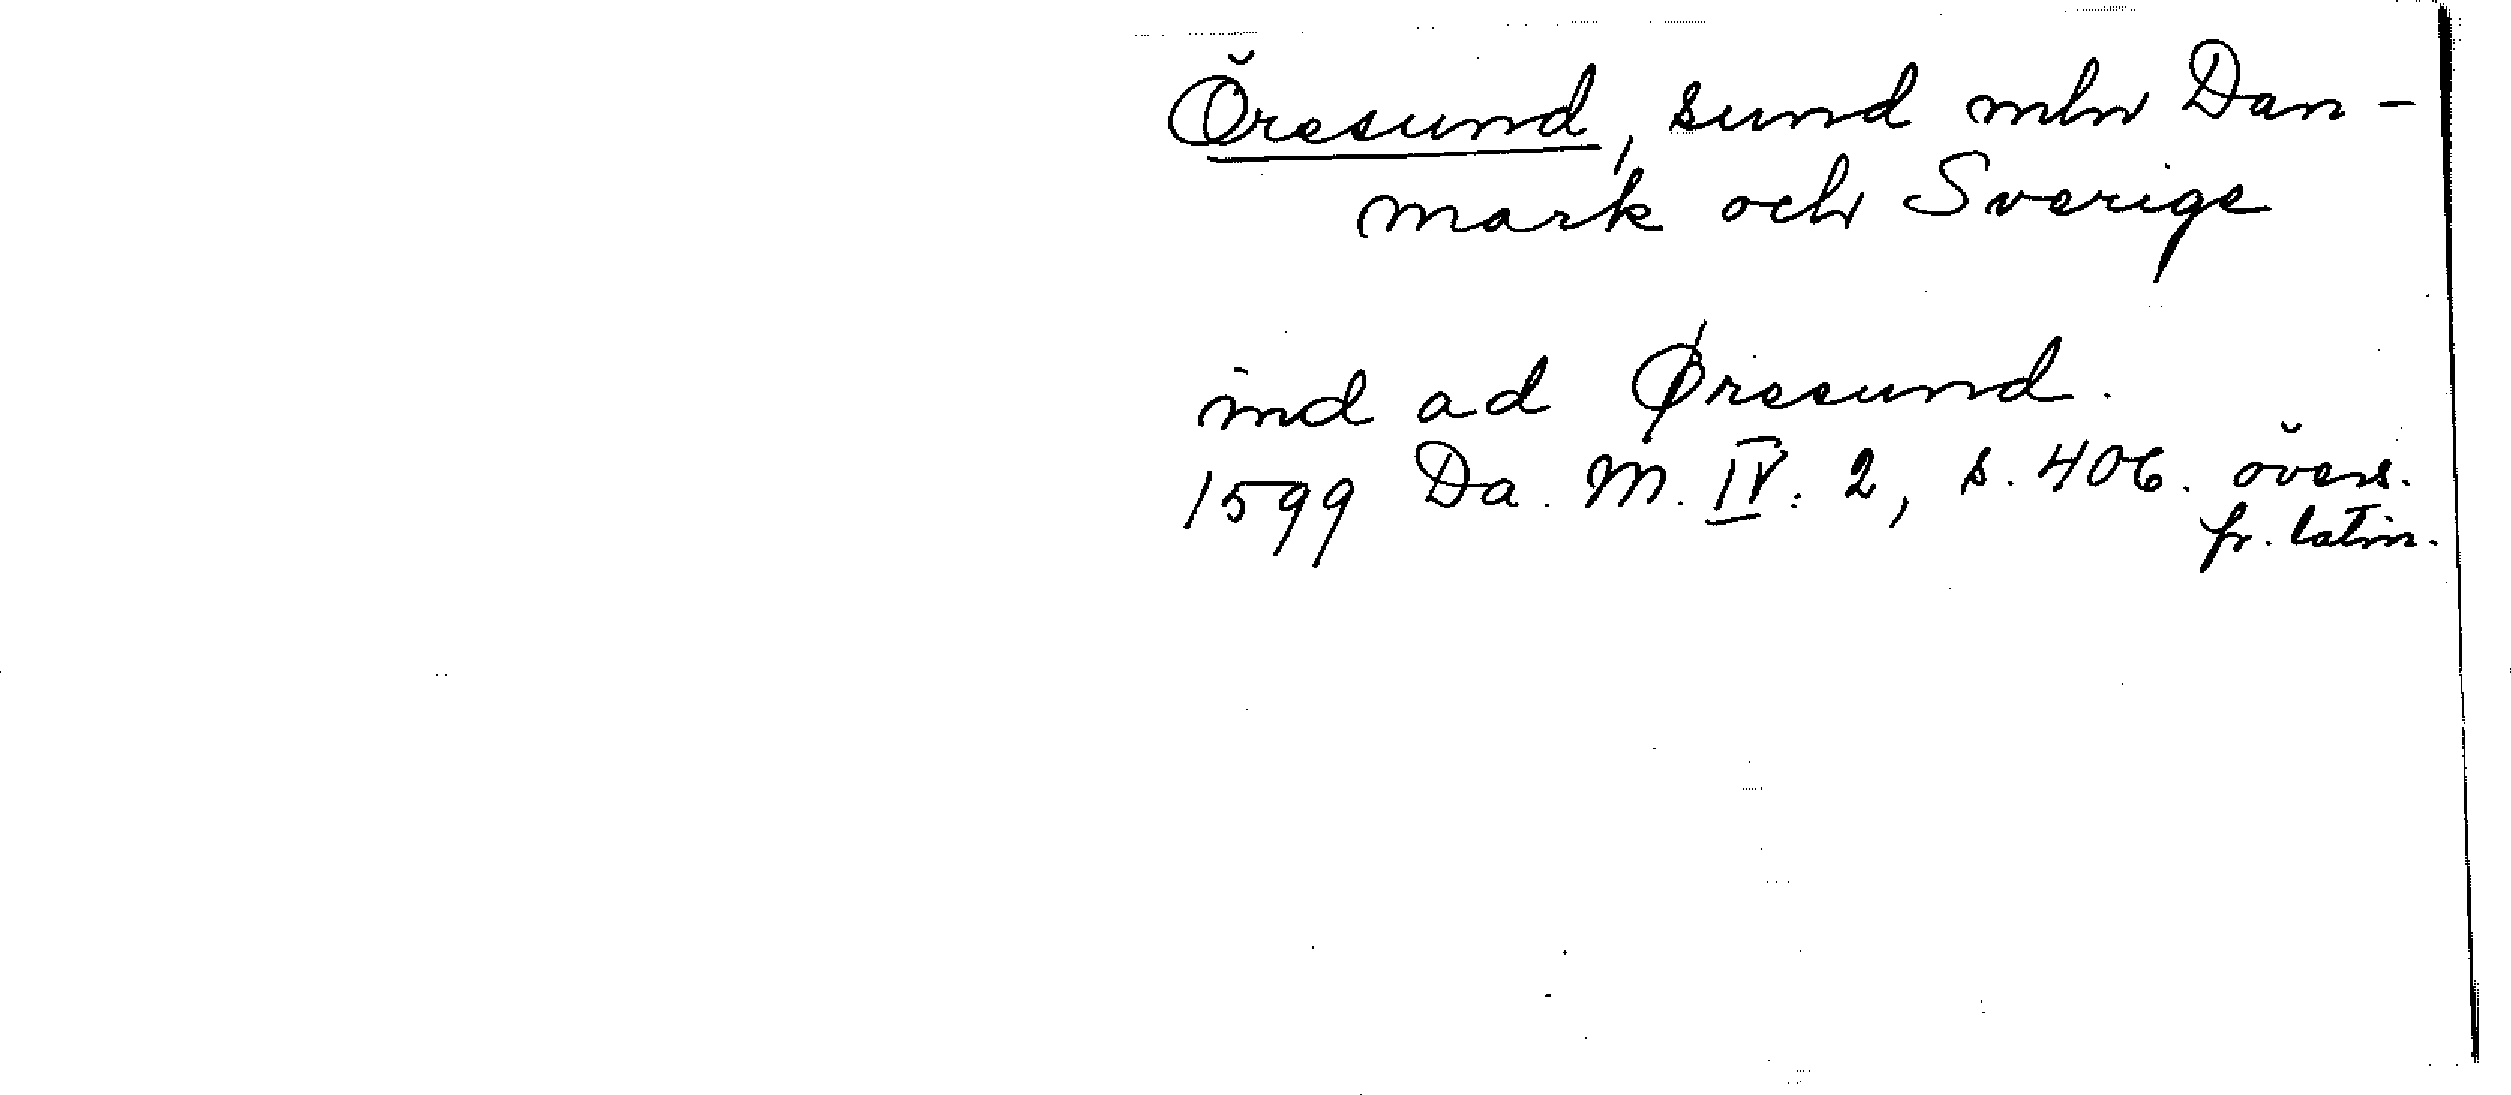 Öresund, sund mln Dan-
mark och Sverige
ind ad Øresund.
1599 Da. M. IV: 2, s. 406. övers.
fr. latin.